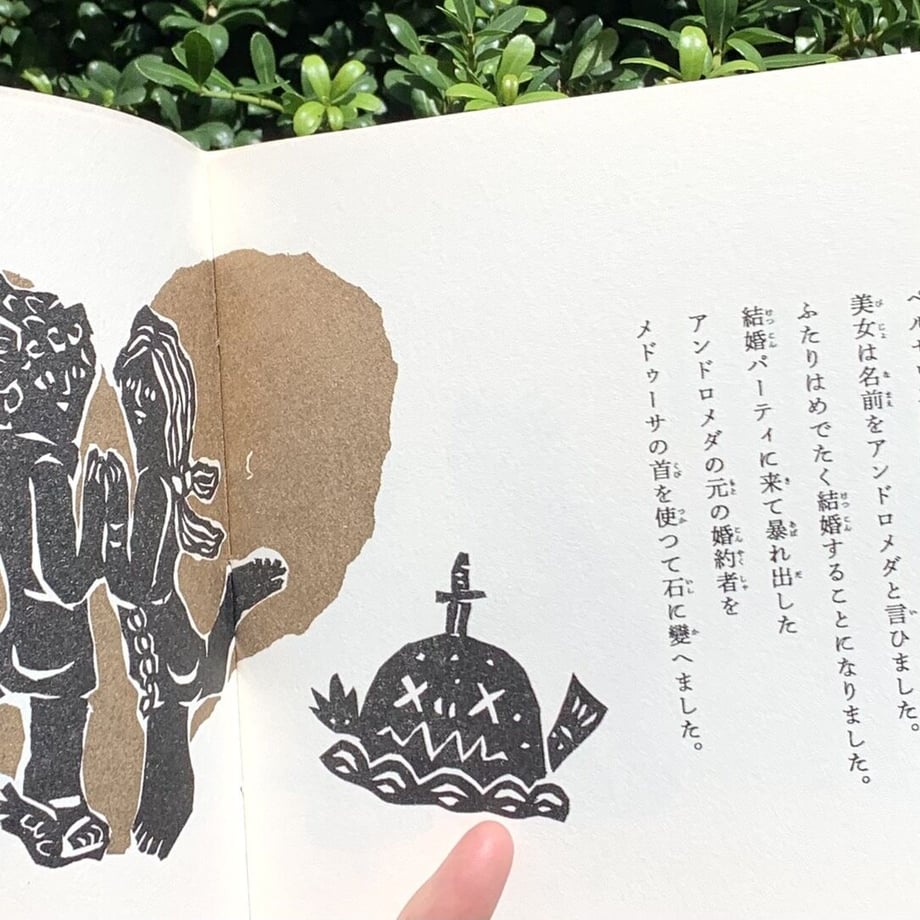 美女は名前をアンドロメダと言ひました。
ふたりはめでたく結婚することになりました。
結婚パーティに来て暴れ出した
アンドロメダの元の婚約者を
メドゥーサの首を使つて石に變へました。